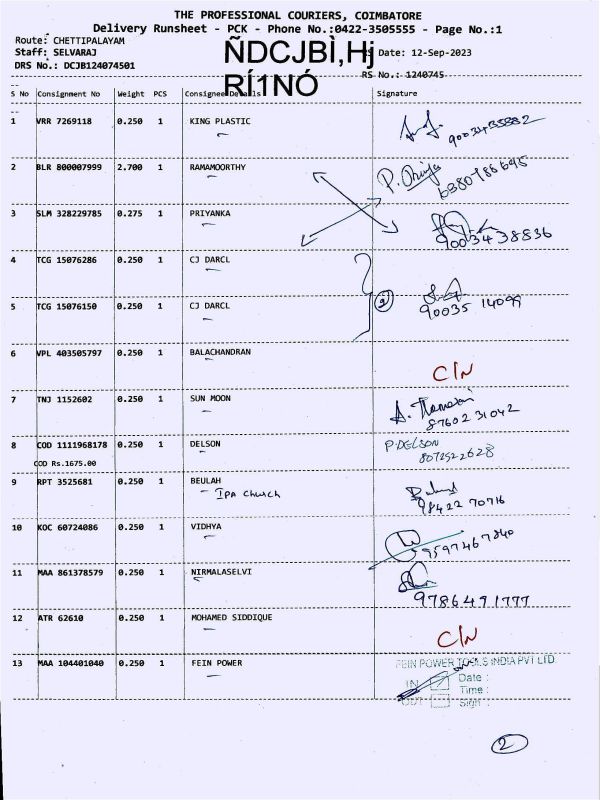 THE PROFESSIONAL COURIERS, COIMBATORE
Delivery Runsheet - PCK - Phone No.:0422-3505555 - Page No.:1
Route: CHETTIPALAYAM
Staff: SELVARAJ Date: 12-Sep-2023
DRS No.: DCJB124074501 RS No.: 1240745
ÑDCJBÌ,Hj
RÍ1NÓ
S No Consignment No Weight PCS Consignee Details Signature
1 VRR 7269118 0.250 1 KING PLASTIC
2 BLR 800007999 2.700 1 RAMAMOORTHY
3 SLM 328229785 0.275 1 PRIYANKA 9003438836
4 TCG 15076286 0.250 1 CJ DARCL
5 TCG 15076150 0.250 1 CJ DARCL 90035 14099
6 VPL 403505797 0.250 1 BALACHANDRAN C/N
7 TNJ 1152602 0.250 1 SUN MOON 8760231042
8 COD 1111968178 0.250 1 DELSON P.DELSON
COD Rs.1675.00 8072522628
9 RPT 3525681 0.250 1 BEULAH
Ipa church 98422 70716
10 KOC 60724086 0.250 1 VIDHYA 9597467840
11 MAA 861378579 0.250 1 NIRMALASELVI 9786491777
12 ATR 62610 0.250 1 MOHAMED SIDDIQUE C/N
13 MAA 104401040 0.250 1 FEIN POWER FEIN POWER TOOLS INDIA PVT LTD.
IN Date :
Time :
OUT Sign :
2